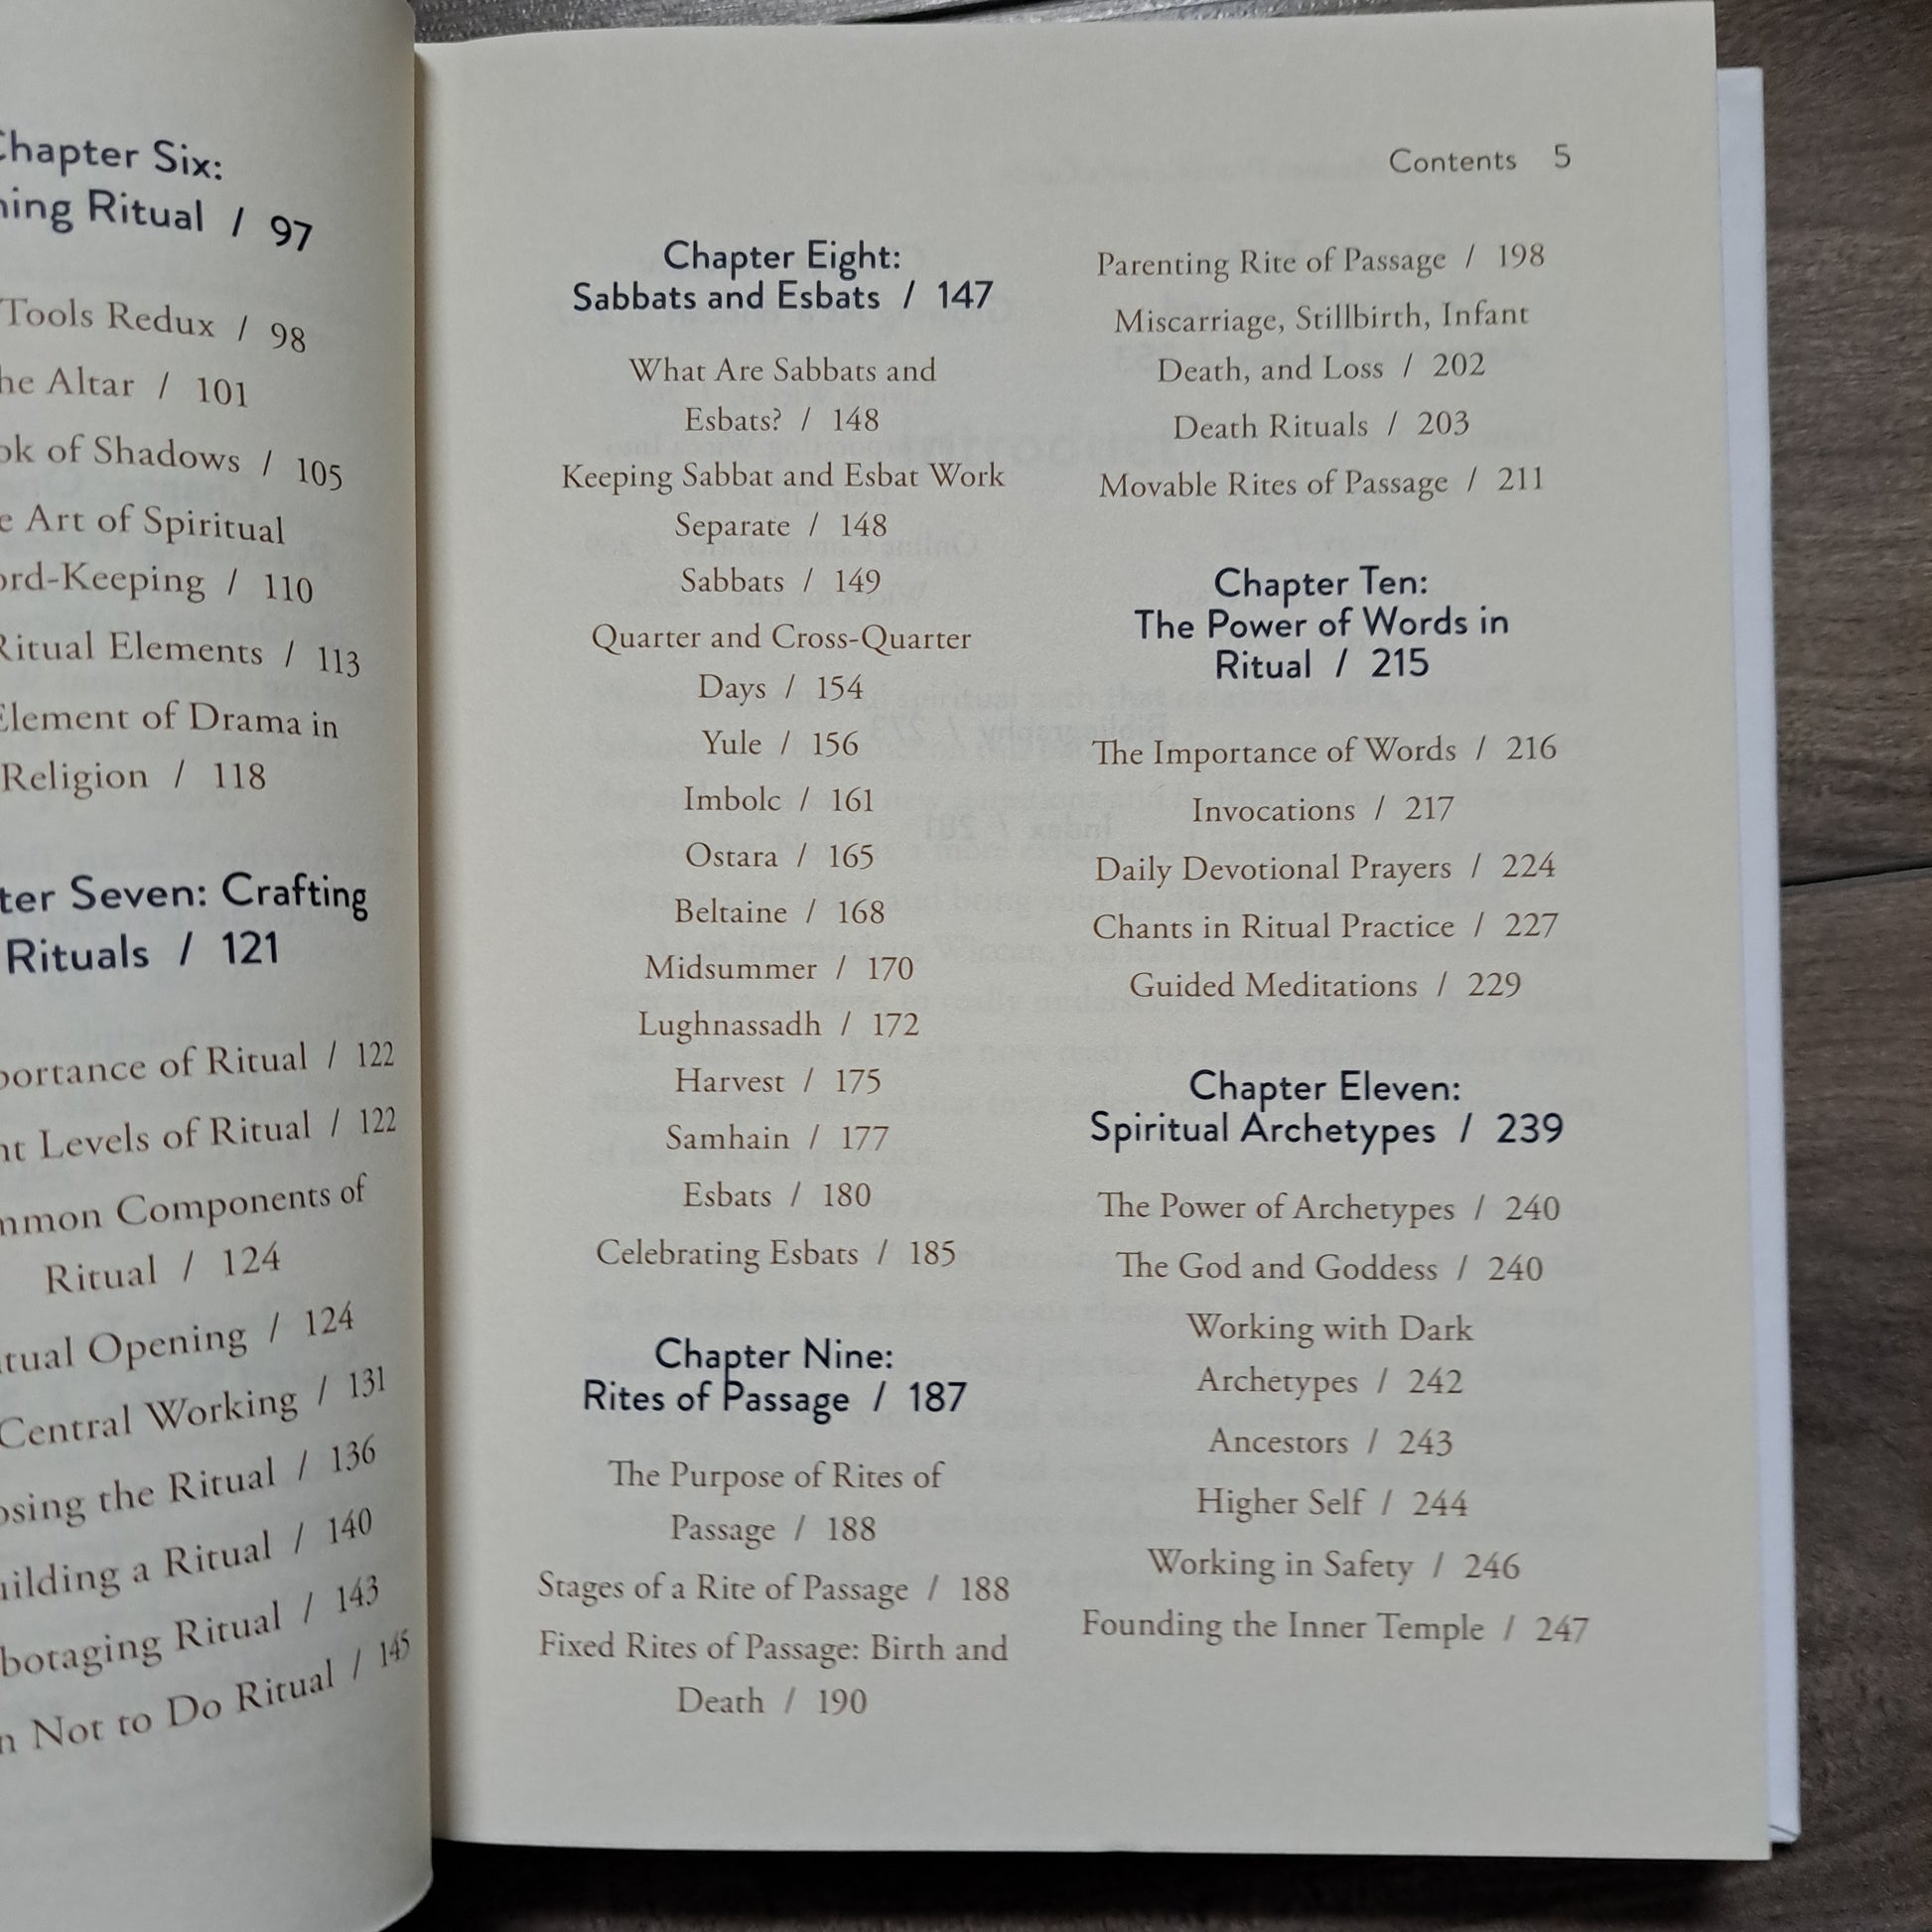 Chapter Six:
Ritual / 97
Tools Redux / 98
Altar / 101
of Shadows / 105
Art of Spiritual
110
Ritual Elements / 113
Element of Drama in
Religion / 118
Seven: Crafting
Rituals / 121
of Ritual / 122
Levels of Ritual / 122
Components of
Ritual / 124
Opening / 124
Central Working / 131
the Ritual / 136
a Ritual / 140
Ritual / 143
Not to Do Ritual / 145
Contents 5
Chapter Eight:
Sabbats and Esbats / 147
What Are Sabbats and
Esbats? / 148
Keeping Sabbat and Esbat Work
Separate / 148
Sabbats / 149
Quarter and Cross-Quarter
Days / 154
Yule / 156
Imbolc / 161
Ostara / 165
Beltaine / 168
Midsummer / 170
Lughnassadh / 172
Harvest / 175
Samhain / 177
Esbats / 180
Celebrating Esbats / 185
Chapter Nine:
Rites of Passage / 187
The Purpose of Rites of
Passage / 188
Stages of a Rite of Passage / 188
Fixed Rites of Passage: Birth and
Death / 190
Parenting Rite of Passage / 198
Miscarriage, Stillbirth, Infant
Death, and Loss / 202
Death Rituals / 203
Movable Rites of Passage / 211
Chapter Ten:
The Power of Words in
Ritual / 215
The Importance of Words / 216
Invocations / 217
Daily Devotional Prayers / 224
Chants in Ritual Practice / 227
Guided Meditations / 229
Chapter Eleven:
Spiritual Archetypes / 239
The Power of Archetypes / 240
The God and Goddess / 240
Working with Dark
Archetypes / 242
Ancestors / 243
Higher Self / 244
Working in Safety / 246
Founding the Inner Temple / 247